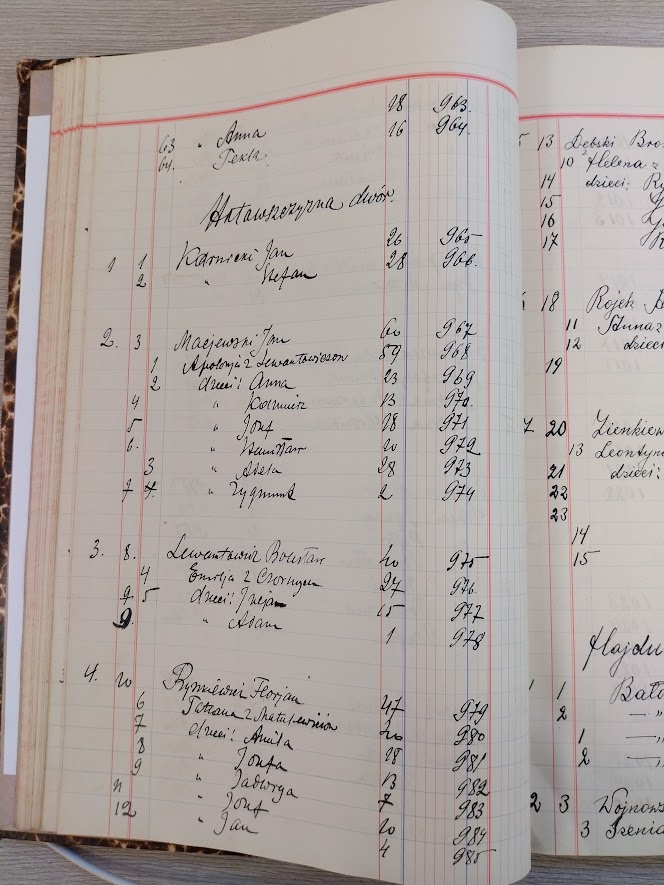 63 " Anna 18 963.
64. Tekla 16 964.
Hutawszczyzna dwór.
1 1 Karnicki Jan 26 965
2 " Stefan 28 966.
2. 3 Maciejewski Jan 60 967
1 Apolonja z Lewantowiczów 59 968
2 dzieci: Anna 23 969
4 " Kazimierz 13 970.
5 " Józef 18 971
6. " Stanisław 20 972
3 " Adela 28 973
7 4. " Zygmunt 2 974
3. 8. Lewantowicz Bolesław 40 975
4 Emilja z 27 976.
9 5 dzieci: 15 977
9. " Adam 1 978
4. 10 Florjan 47 979
6 Tatiana z Matusewiczów 40 980
7 dzieci: Amila 18 981
8 " Józefa 13 982
9 " Jadwiga 7 983
11 " Józef 10 984
12 " Jan 4 985
5 13 Dębski
10 Helena z
14 dzieci:
15
16
17
18 Rojek
11 Anna z
12 dzieci
19
7 20 Zienkiew
13 Leontyn
21 dzieci:
22
23
14
15
Hajdu
1 1
2 — "
1 — "
2 — "
2 3 Wojnows
3 Ksenia